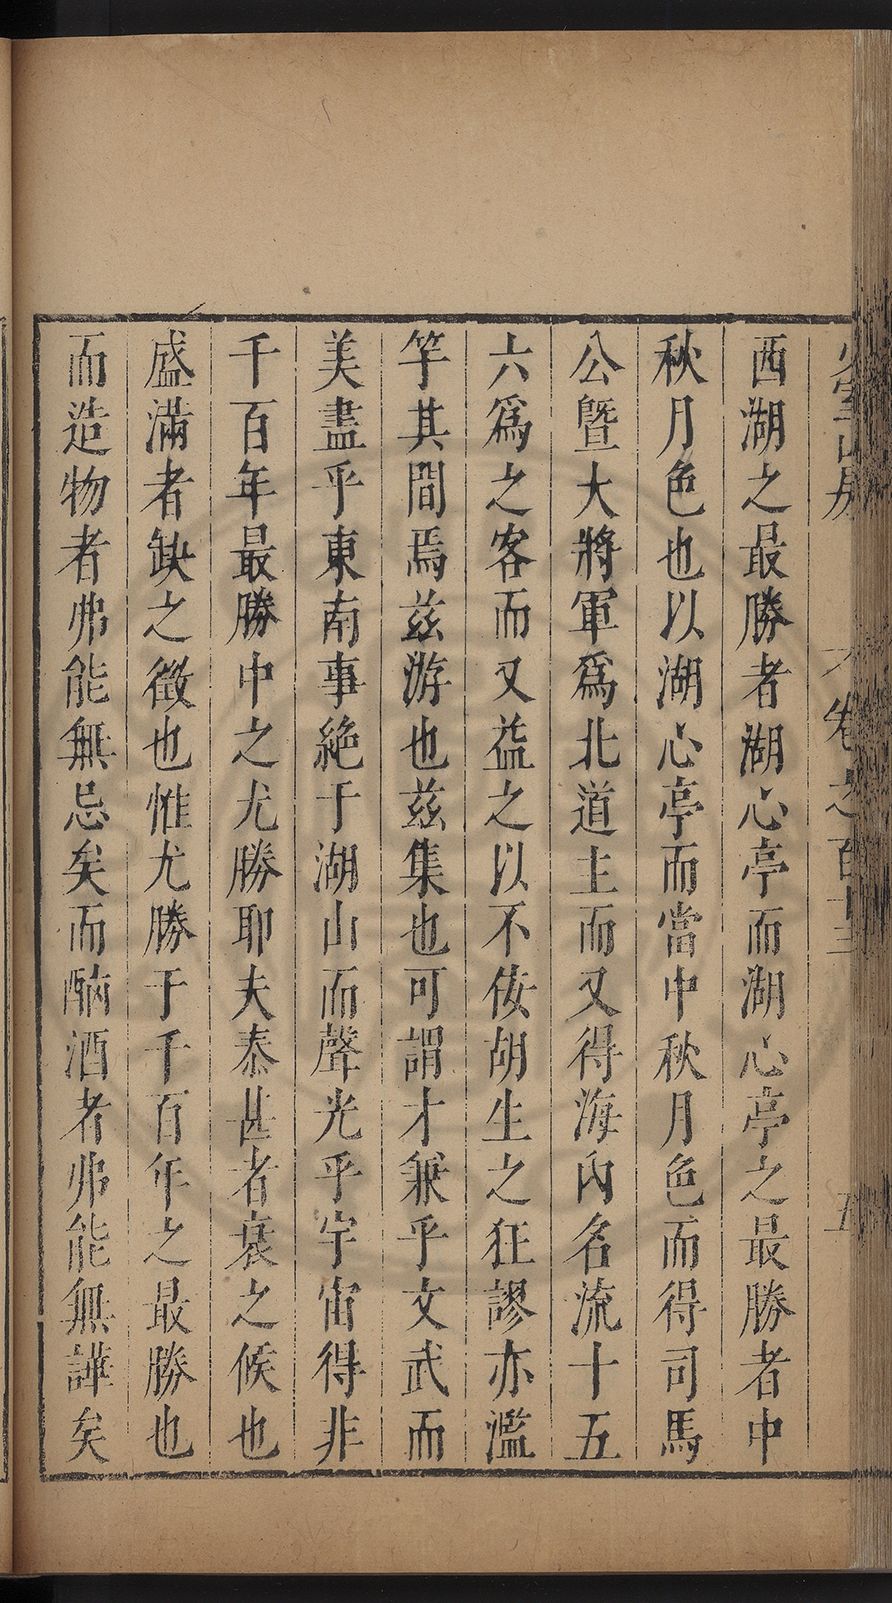 少室山房 卷之百十三 五
西湖之最勝者湖心亭而湖心亭之最勝者中
秋月色也以湖心亭而當中秋月色而得司馬
公曁大將軍爲北道主而又得海內名流十五
六爲之客而又益之以不佞胡生之狂謬亦濫
竽其間焉兹游也兹集也可謂才兼乎文武而
美盡乎東南事絶于湖山而聲光乎宇宙得非
千百年最勝中之尤勝耶夫泰甚者衰之候也
盛滿者缺之徵也惟尤勝于千百年之最勝也
而造物者弗能無忌矣而酗酒者弗能無譁矣